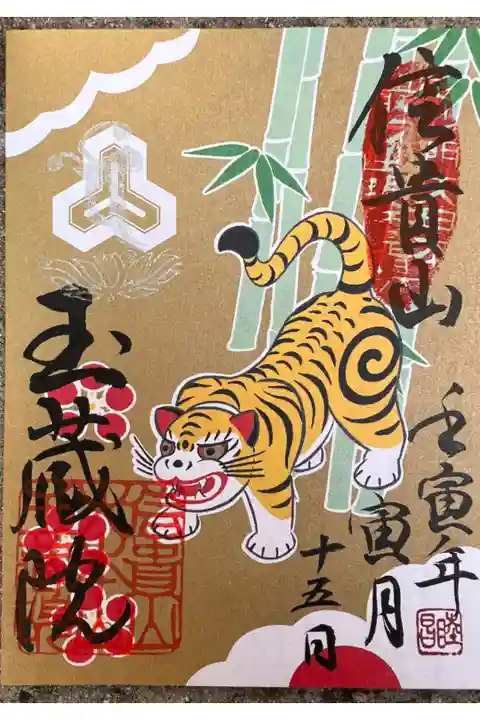 信貴山
壬寅年
寅月
十五日
玉蔵院